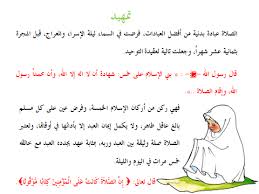 تمهيد
الصلاة عبادة بدنية من أفضل العبادات، فرضت في السماء ليلة الإسراء، والمعراج، قبل الهجرة
بثمانية عشر شهراً، وجعلت تالية لعقيدة التوحيد.
قال رسول الله ﷺ : « بني الإسلام على خمس شهادة أن لا إله إلا الله، وأن محمداً رسول
الله، وإقام الصلاة ... »
فهي ركن من أركان الإسلام الخمسة، وفرض عين على كل مسلم
بالغ عاقل طاهر، ولا يكمل إيمان العبد إلا بأدائها في أوقاتها، وتعتبر
الصلاة صلة وثيقة بين العبد وربه، بمثابة عهد يجدده العبد مع خالقه
خمس مرات في اليوم والليلة
قال تعالى : ﴿ إِنَّ الصَّلَاةَ كَانَتْ عَلَى الْمُؤْمِنِينَ كِتَابًا مَوْقُوتًا ﴾